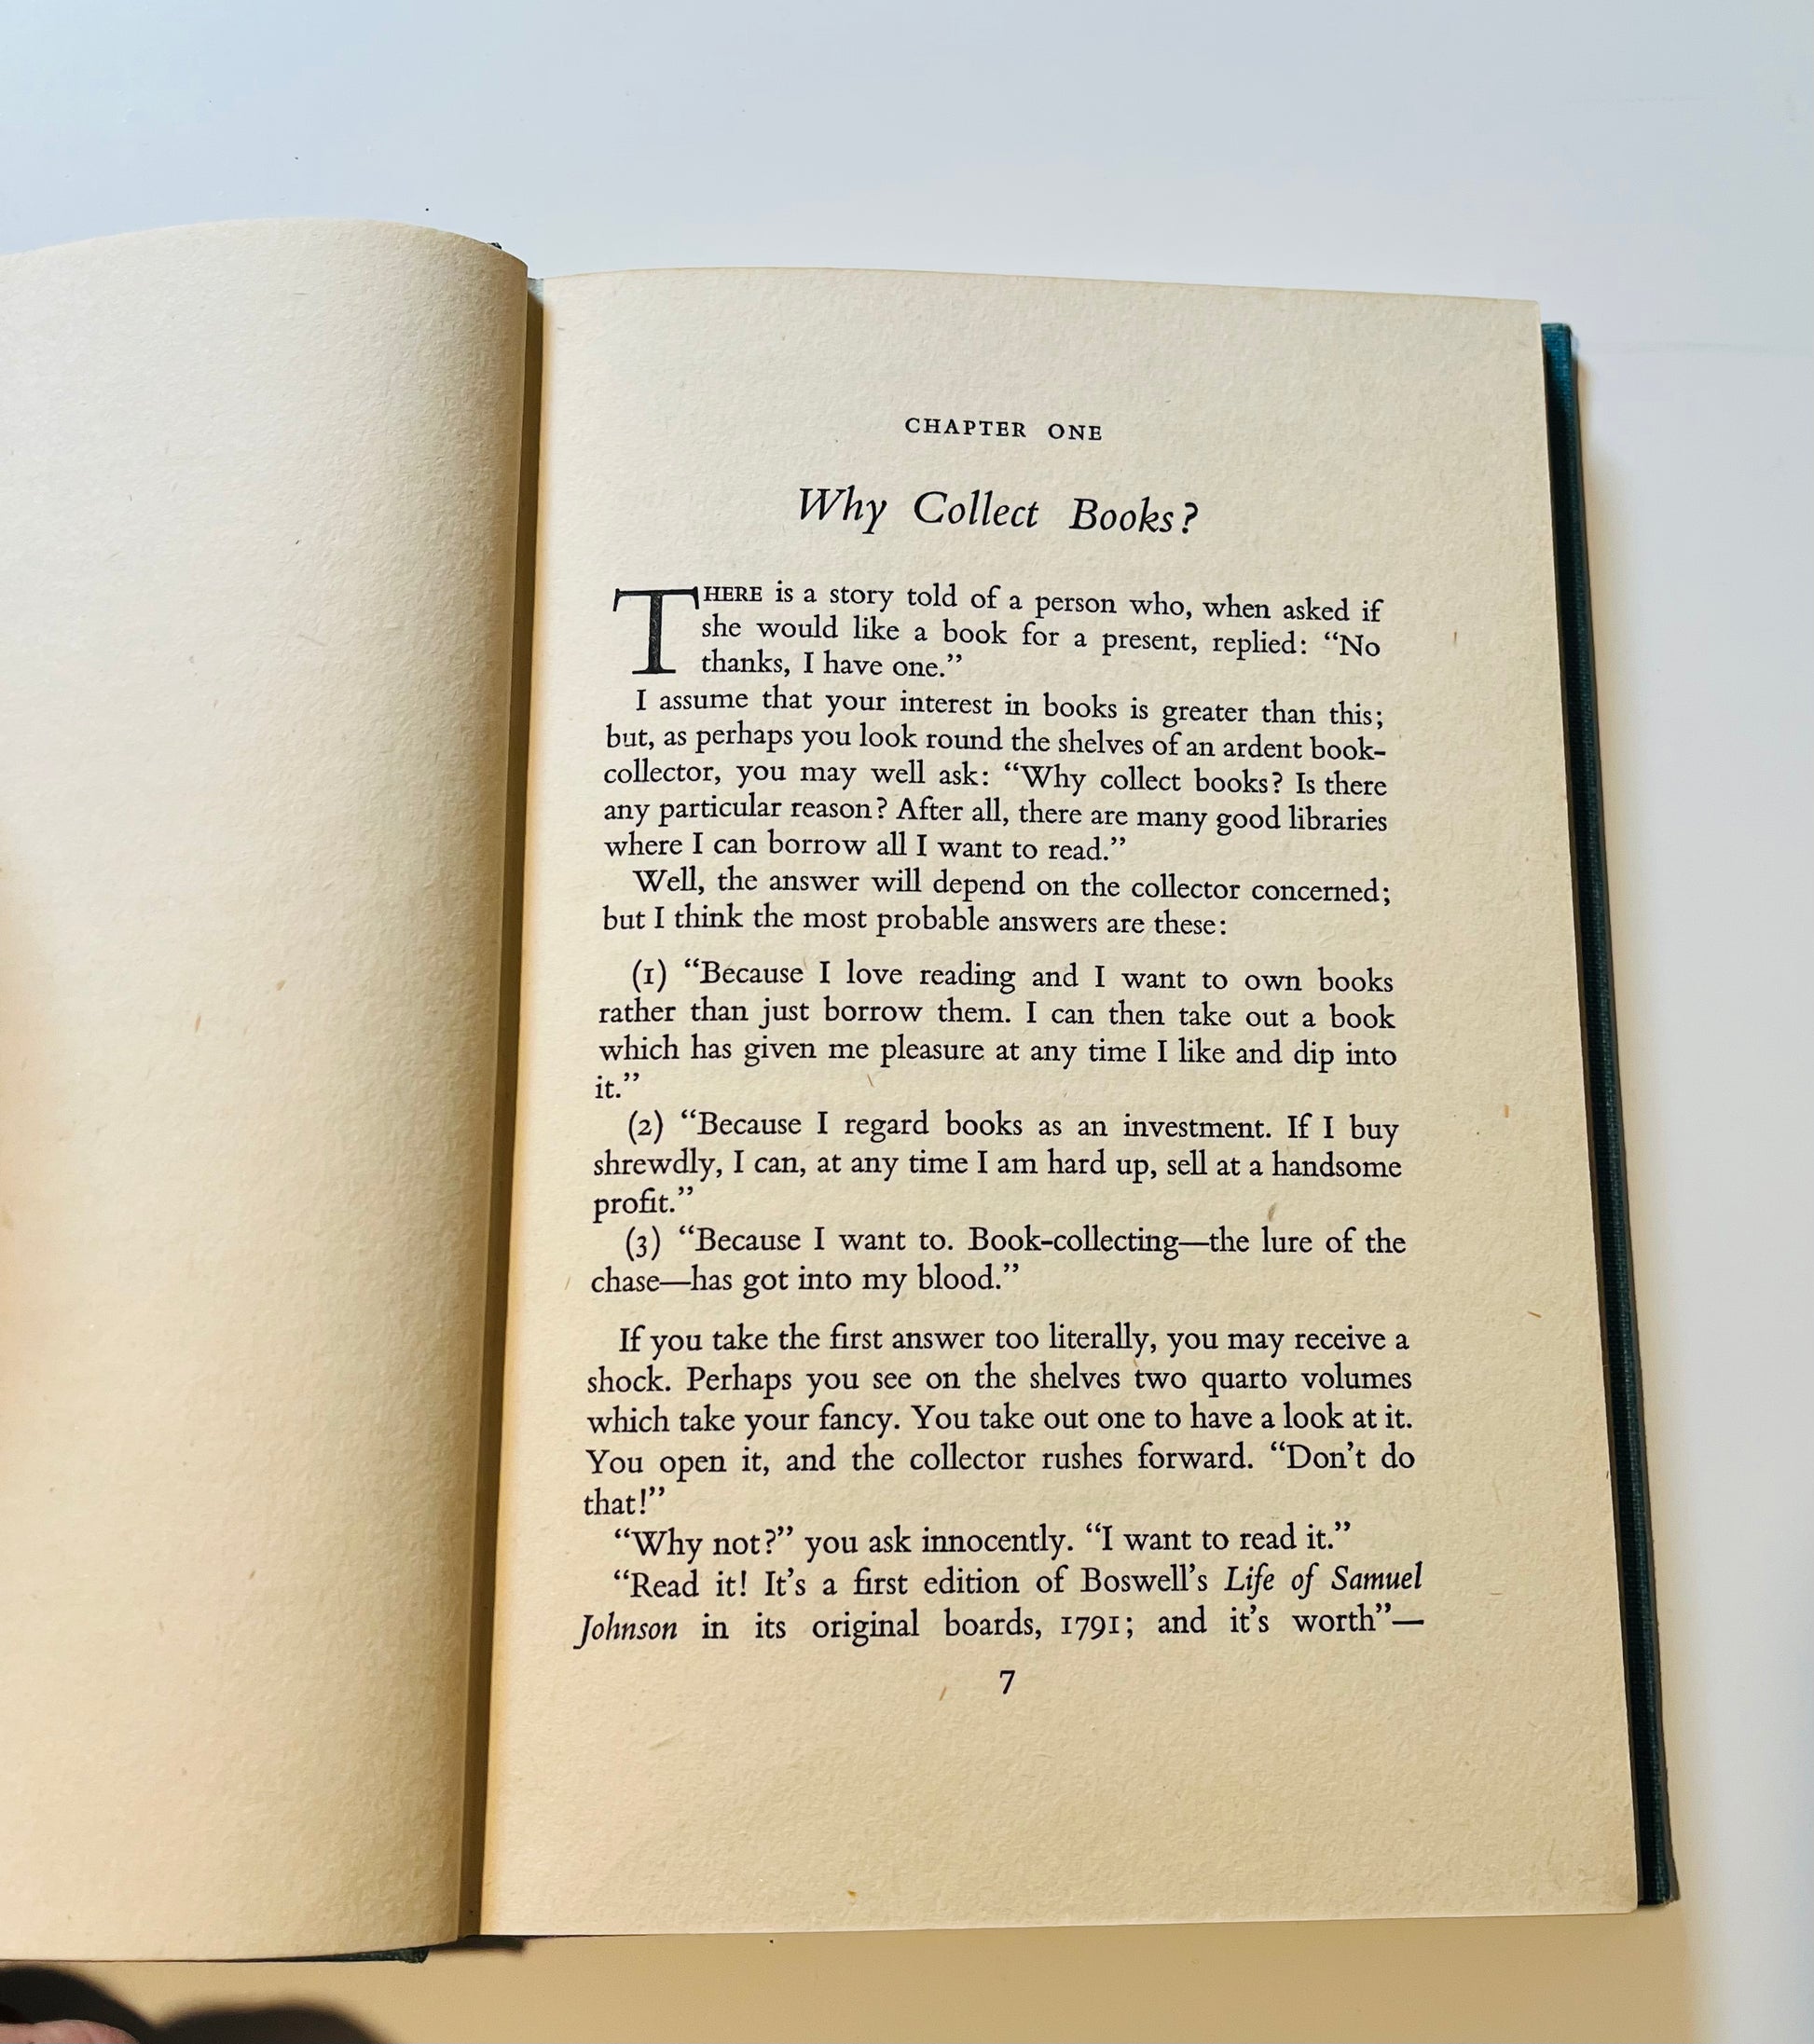 CHAPTER ONE
Why Collect Books?
THERE is a story told of a person who, when asked if
she would like a book for a present, replied: “No
thanks, I have one.”
I assume that your interest in books is greater than this;
but, as perhaps you look round the shelves of an ardent book-
collector, you may well ask: “Why collect books? Is there
any particular reason? After all, there are many good libraries
where I can borrow all I want to read.”
Well, the answer will depend on the collector concerned;
but I think the most probable answers are these:
(1) “Because I love reading and I want to own books
rather than just borrow them. I can then take out a book
which has given me pleasure at any time I like and dip into
it.”
(2) “Because I regard books as an investment. If I buy
shrewdly, I can, at any time I am hard up, sell at a handsome
profit.”
(3) “Because I want to. Book-collecting—the lure of the
chase—has got into my blood.”
If you take the first answer too literally, you may receive a
shock. Perhaps you see on the shelves two quarto volumes
which take your fancy. You take out one to have a look at it.
You open it, and the collector rushes forward. “Don’t do
that!”
“Why not?” you ask innocently. “I want to read it.”
“Read it! It’s a first edition of Boswell’s Life of Samuel
Johnson in its original boards, 1791; and it’s worth”—
7